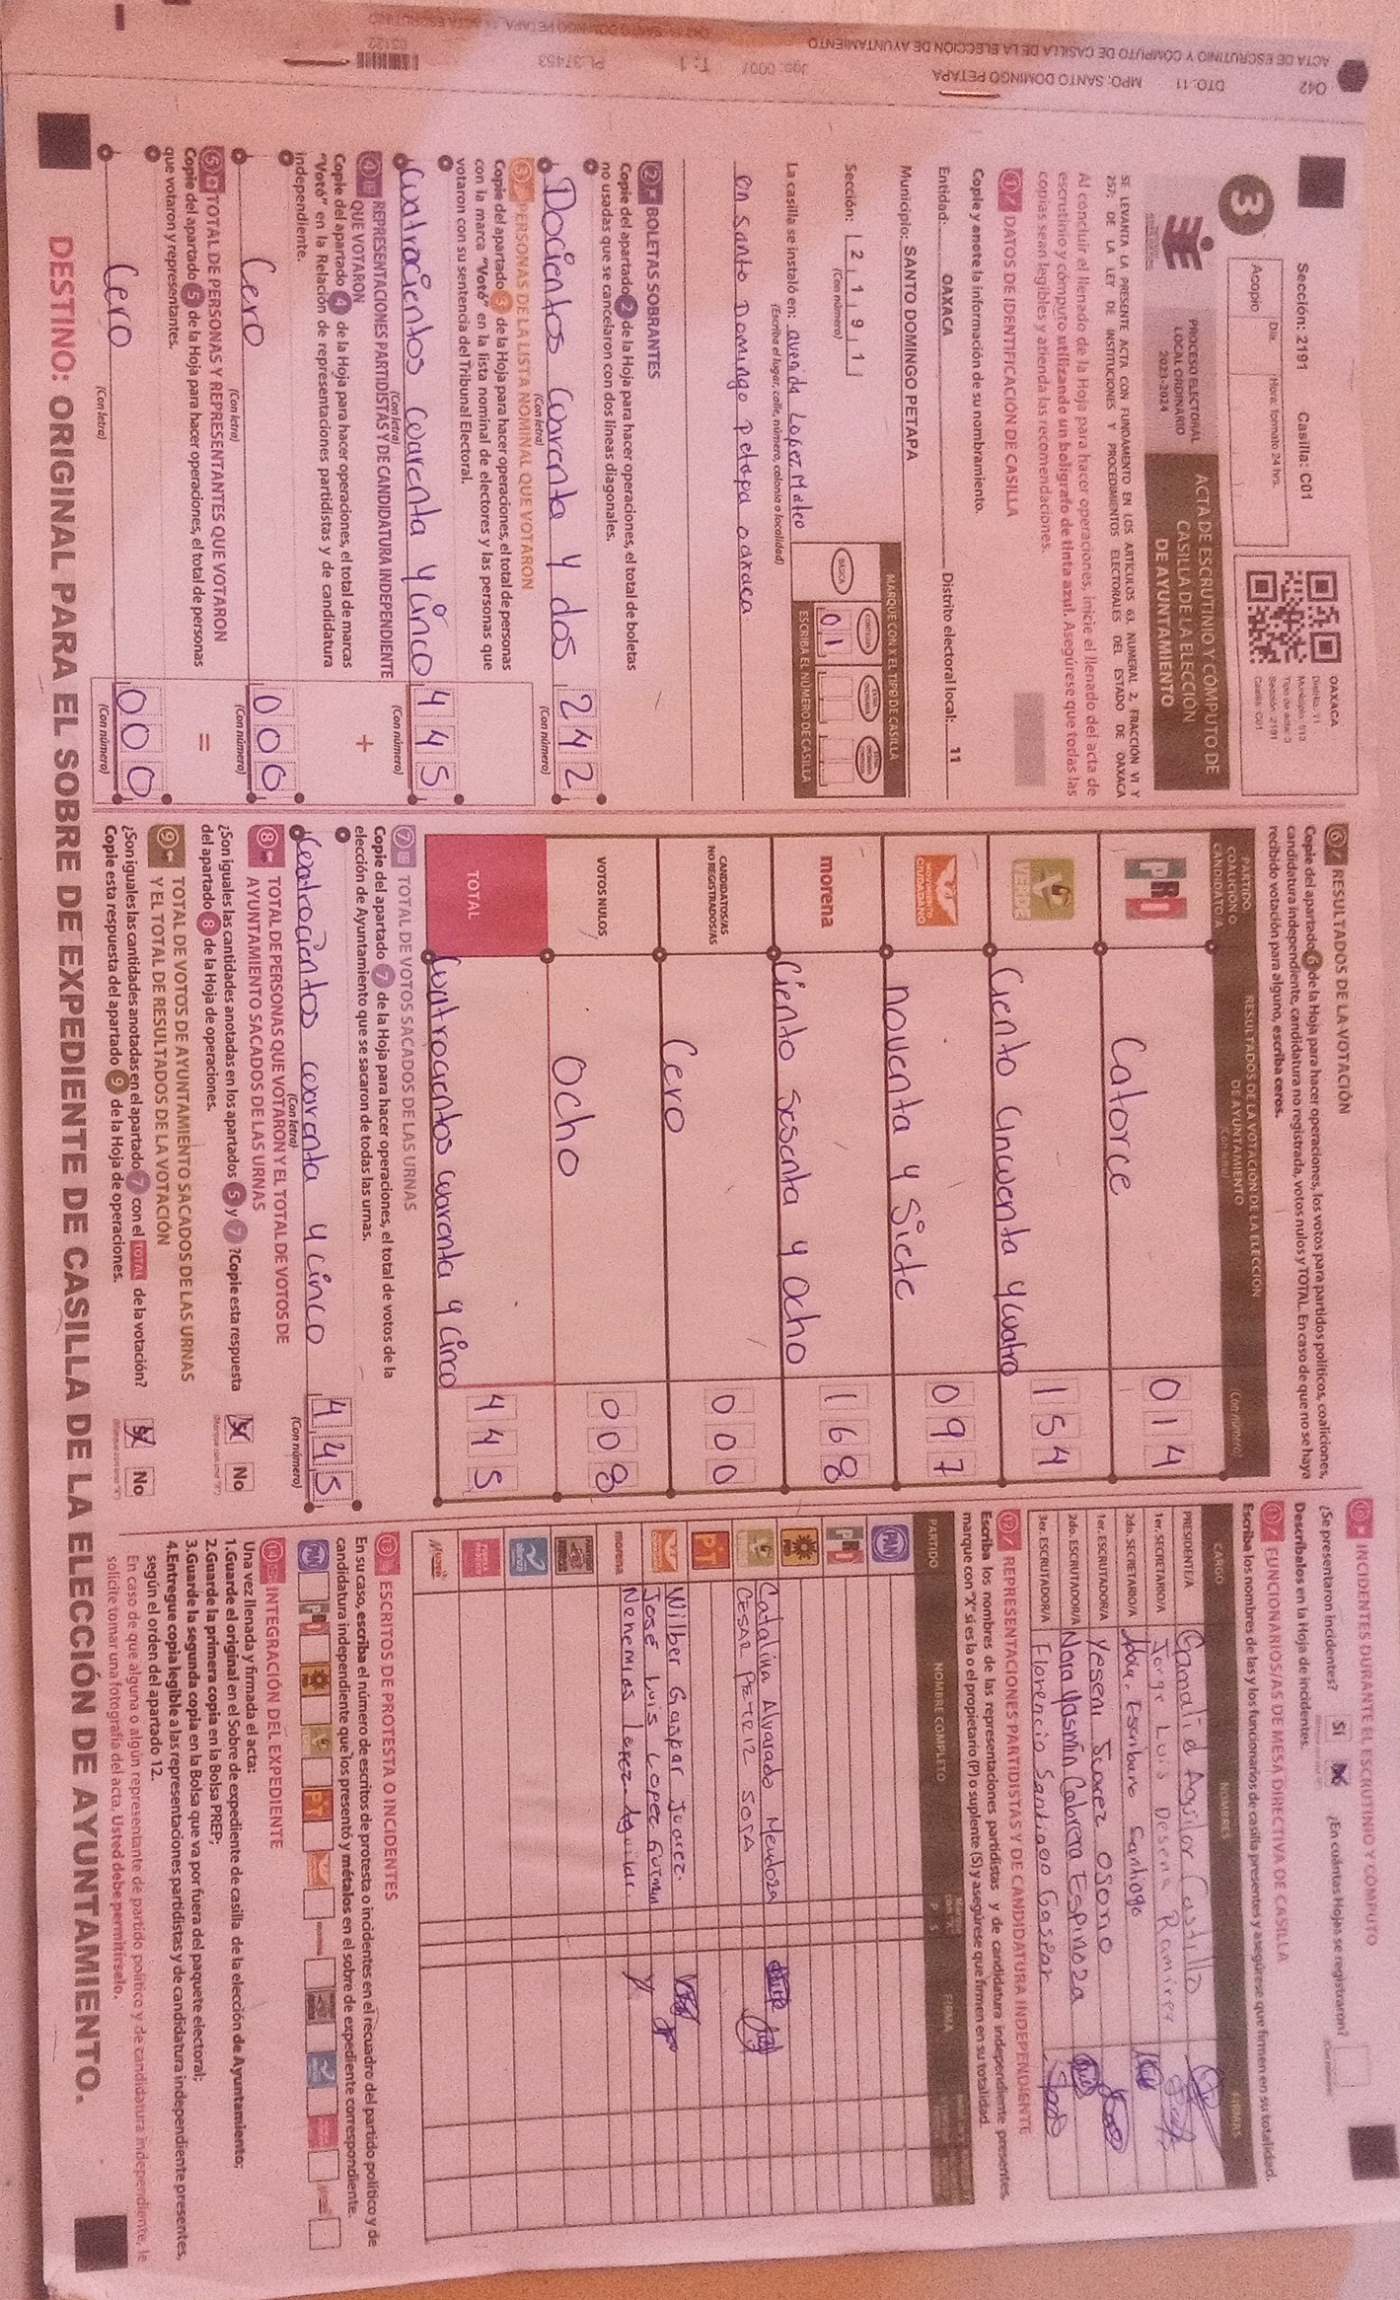 Sección: 2191 Casilla: C01
Día Hora: formato 24 hrs.
Acopio
3
PROCESO ELECTORAL
LOCAL ORDINARIO
2023-2024
ACTA DE ESCRUTINIO Y CÓMPUTO DE
CASILLA DE LA ELECCIÓN
DE AYUNTAMIENTO
OAXACA
SE LEVANTA LA PRESENTE ACTA CON FUNDAMENTO EN LOS ARTÍCULOS 63, NUMERAL 2, FRACCIÓN VI Y
257; DE LA LEY DE INSTITUCIONES Y PROCEDIMIENTOS ELECTORALES DEL ESTADO DE OAXACA
Al concluir el llenado de la Hoja para hacer operaciones, inicie el llenado del acta de
escrutinio y cómputo utilizando un bolígrafo de tinta azul. Asegúrese que todas las
copias sean legibles y atienda las recomendaciones.
1 DATOS DE IDENTIFICACIÓN DE CASILLA
Copie y anote la información de su nombramiento.
Entidad: OAXACA Distrito electoral local: 11
Municipio: SANTO DOMINGO PETAPA
Sección: 2 1 9 1
(Con número)
MARQUE CON X EL TIPO DE CASILLA
BÁSICA
0 1
ESCRIBA EL NÚMERO DE CASILLA
La casilla se instaló en: avenida Lopez Mateo
(Escriba el lugar, calle, número, colonia o localidad)
en santo Domingo petapa oaxaca
2 BOLETAS SOBRANTES
Copie del apartado 2 de la Hoja para hacer operaciones, el total de boletas
no usadas que se cancelaron con dos líneas diagonales.
Docientos cuarenta y dos 242
(Con letra) (Con número)
3 PERSONAS DE LA LISTA NOMINAL QUE VOTARON
Copie del apartado 3 de la Hoja para hacer operaciones, el total de personas
con la marca "Votó" en la lista nominal de electores y las personas que
votaron con su sentencia del Tribunal Electoral.
Cuatrocientos cuarenta y cinco 445
(Con letra) (Con número)
4 REPRESENTACIONES PARTIDISTAS Y DE CANDIDATURA INDEPENDIENTE
QUE VOTARON
+
Copie del apartado 4 de la Hoja para hacer operaciones, el total de marcas
"Votó" en la Relación de representaciones partidistas y de candidatura
independiente.
Cero 000
(Con letra) (Con número)
5 TOTAL DE PERSONAS Y REPRESENTANTES QUE VOTARON
=
Copie del apartado 5 de la Hoja para hacer operaciones, el total de personas
que votaron y representantes.
Cero 000
(Con letra) (Con número)
6 RESULTADOS DE LA VOTACIÓN
Copie del apartado 6 de la Hoja para hacer operaciones, los votos para partidos políticos, coaliciones,
candidatura independiente, candidatura no registrada, votos nulos y TOTAL. En caso de que no se haya
recibido votación para alguno, escriba ceros.
PARTIDO
COALICIÓN O
CANDIDATO/A
RESULTADOS DE LA VOTACIÓN DE LA ELECCIÓN
DE AYUNTAMIENTO
(Con letra) (Con número)
PRI Catorce 014
VERDE Ciento cincuenta y cuatro 154
MOVIMIENTO CIUDADANO noventa y Siete 097
morena Ciento sesenta y ocho 168
CANDIDATOS/AS
NO REGISTRADOS/AS Cero 000
VOTOS NULOS Ocho 008
TOTAL Cuatrocientos cuarenta y cinco 445
7 TOTAL DE VOTOS SACADOS DE LAS URNAS
Copie del apartado 7 de la Hoja para hacer operaciones, el total de votos de la
elección de Ayuntamiento que se sacaron de todas las urnas.
Cuatrocientos cuarenta y cinco 445
(Con letra) (Con número)
8 TOTAL DE PERSONAS QUE VOTARON Y EL TOTAL DE VOTOS DE
AYUNTAMIENTO SACADOS DE LAS URNAS
¿Son iguales las cantidades anotadas en los apartados 5 y 7 ?Copie esta respuesta
del apartado 8 de la Hoja de operaciones.
Sí No
9 TOTAL DE VOTOS DE AYUNTAMIENTO SACADOS DE LAS URNAS
Y EL TOTAL DE RESULTADOS DE LA VOTACIÓN
¿Son iguales las cantidades anotadas en el apartado 7 con el TOTAL de la votación?
Copie esta respuesta del apartado 9 de la Hoja de operaciones.
Sí No
10 INCIDENTES DURANTE EL ESCRUTINIO Y CÓMPUTO
¿Se presentaron incidentes? Sí No ¿En cuántas Hojas se registraron?
Descríbalos en la Hoja de incidentes.
11 FUNCIONARIOS/AS DE MESA DIRECTIVA DE CASILLA
Escriba los nombres de las y los funcionarios de casilla presentes y asegúrese que firmen en su totalidad.
CARGO NOMBRES FIRMAS
PRESIDENTE/A Gamaliel Aguilar Castillo
1er. SECRETARIO/A Jorge Luis Desena Ramirez
2do. SECRETARIO/A Aida. Escribano Santiago
1er. ESCRUTADOR/A Yeseni Suarez Osorio
2do. ESCRUTADOR/A Nora Yasmin Cabrera Espinoza
3er. ESCRUTADOR/A Florencio Santiago Gaspar
12 REPRESENTACIONES PARTIDISTAS Y DE CANDIDATURA INDEPENDIENTE
Escriba los nombres de las representaciones partidistas y de candidatura independiente presentes,
marque con "X" si es la o el propietario (P) o suplente (S) y asegúrese que firmen en su totalidad.
PARTIDO NOMBRE COMPLETO FIRMA
PAN
PRI
Catalina Alvarado Mendoza
CESAR PETRIZ SOSA
PT
Wilber Gaspar Juarez.
Jose Luis Lopez Guzman
morena Nehemias Lopez Aguilar.
13 ESCRITOS DE PROTESTA O INCIDENTES
En su caso, escriba el número de escritos de protesta o incidentes en el recuadro del partido político y de
candidatura independiente que los presentó y métalos en el sobre de expediente correspondiente.
PAN PRI PT
14 INTEGRACIÓN DEL EXPEDIENTE
Una vez llenada y firmada el acta:
1.Guarde el original en el Sobre de expediente de casilla de la elección de Ayuntamiento;
2.Guarde la primera copia en la Bolsa PREP;
3.Guarde la segunda copia en la Bolsa que va por fuera del paquete electoral;
4.Entregue copia legible a las representaciones partidistas y de candidatura independiente presentes,
según el orden del apartado 12.
En caso de que alguna o algún representante de partido político y de candidatura independiente, le
solicite tomar una fotografía del acta, Usted debe permitírselo.
DESTINO: ORIGINAL PARA EL SOBRE DE EXPEDIENTE DE CASILLA DE LA ELECCIÓN DE AYUNTAMIENTO.
ACTA DE ESCRUTINIO Y CÓMPUTO DE CASILLA DE LA ELECCIÓN DE AYUNTAMIENTO
042 DTO: 11 MPO: SANTO DOMINGO PETAPA